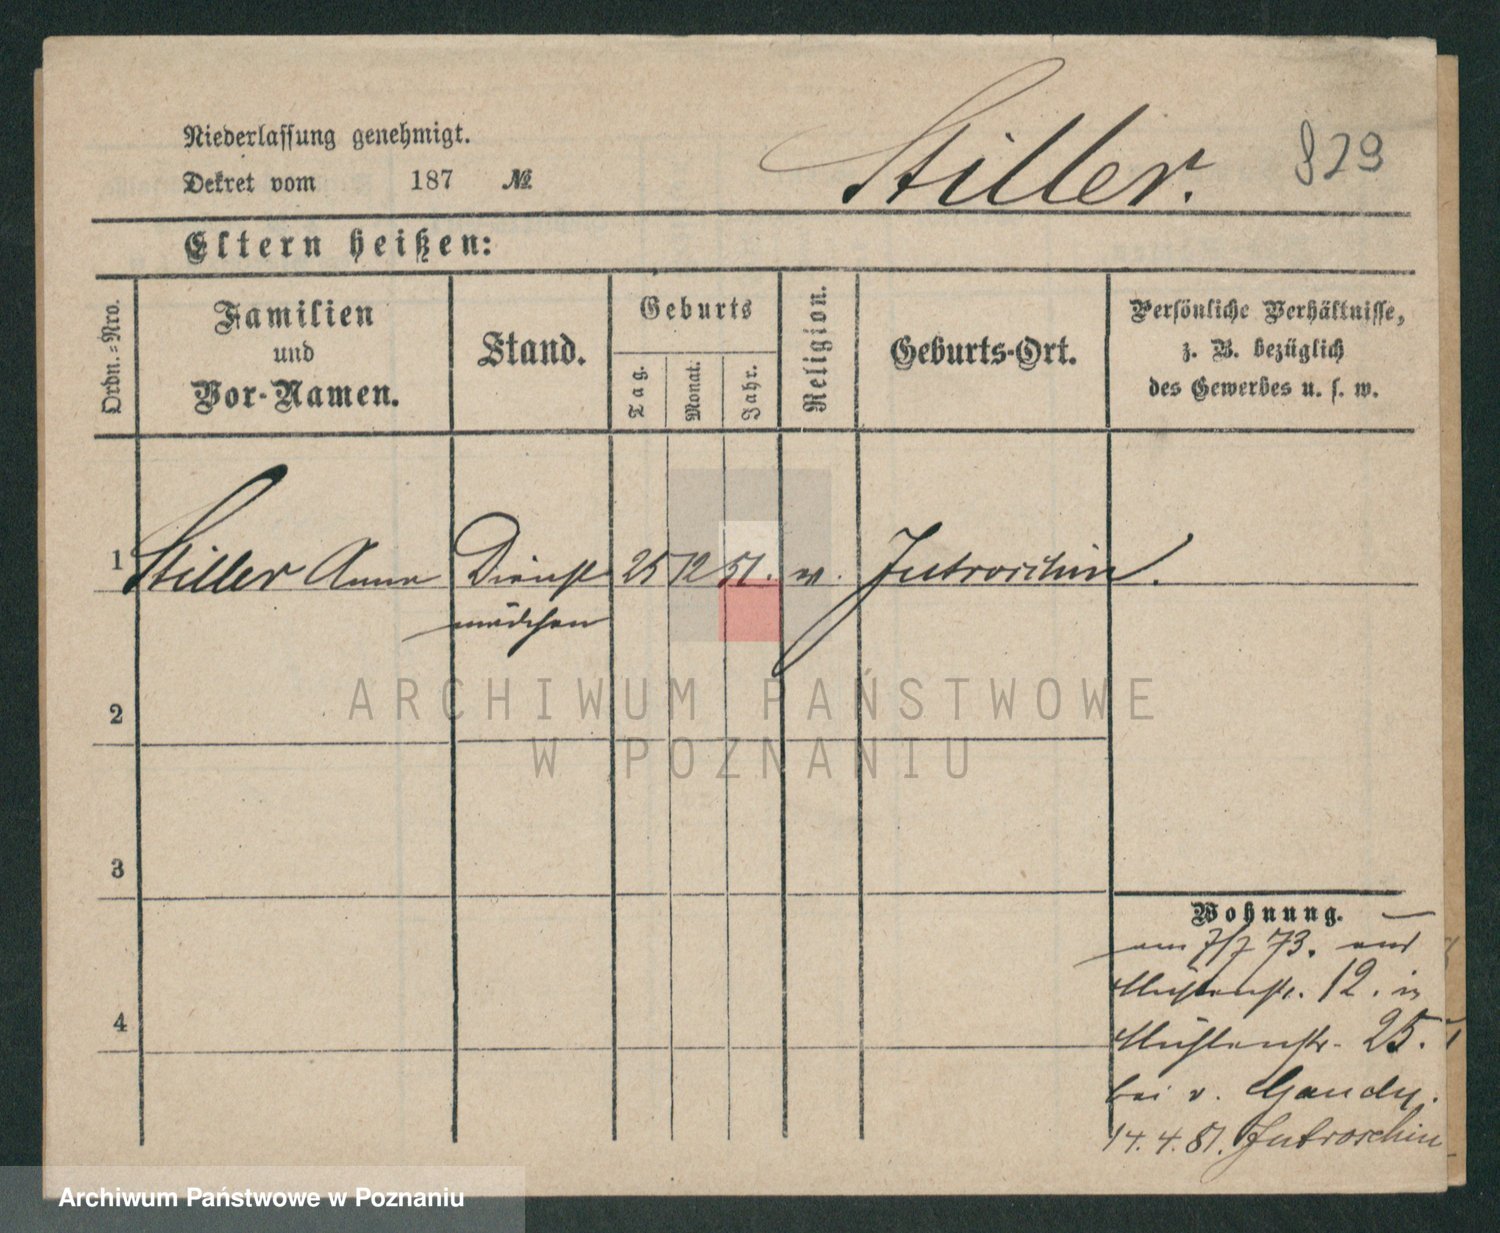 Niederlassung genehmigt.
Dekret vom 187 №
Stiller.
829
Eltern heißen:
Ordn.=Nro.
Familien
und
Vor-Namen.
Stand.
Geburts
Tag.
Monat.
Jahr.
Religion.
Geburts-Ort.
Persönliche Verhältnisse,
z. B. bezüglich
des Gewerbes u. s. w.
1 Stiller Anna Dienst 25 12 51. Jutroschin.
mädchen
2
ARCHIWUM PAŃSTWOWE
W POZNANIU
3
Wohnung.
am 7/7 73. aus
Mühlenstr. 12. in
4
Mühlenstr. 25.
bei v. Gaudy.
14.4.81. Jutroschin
Archiwum Państwowe w Poznaniu